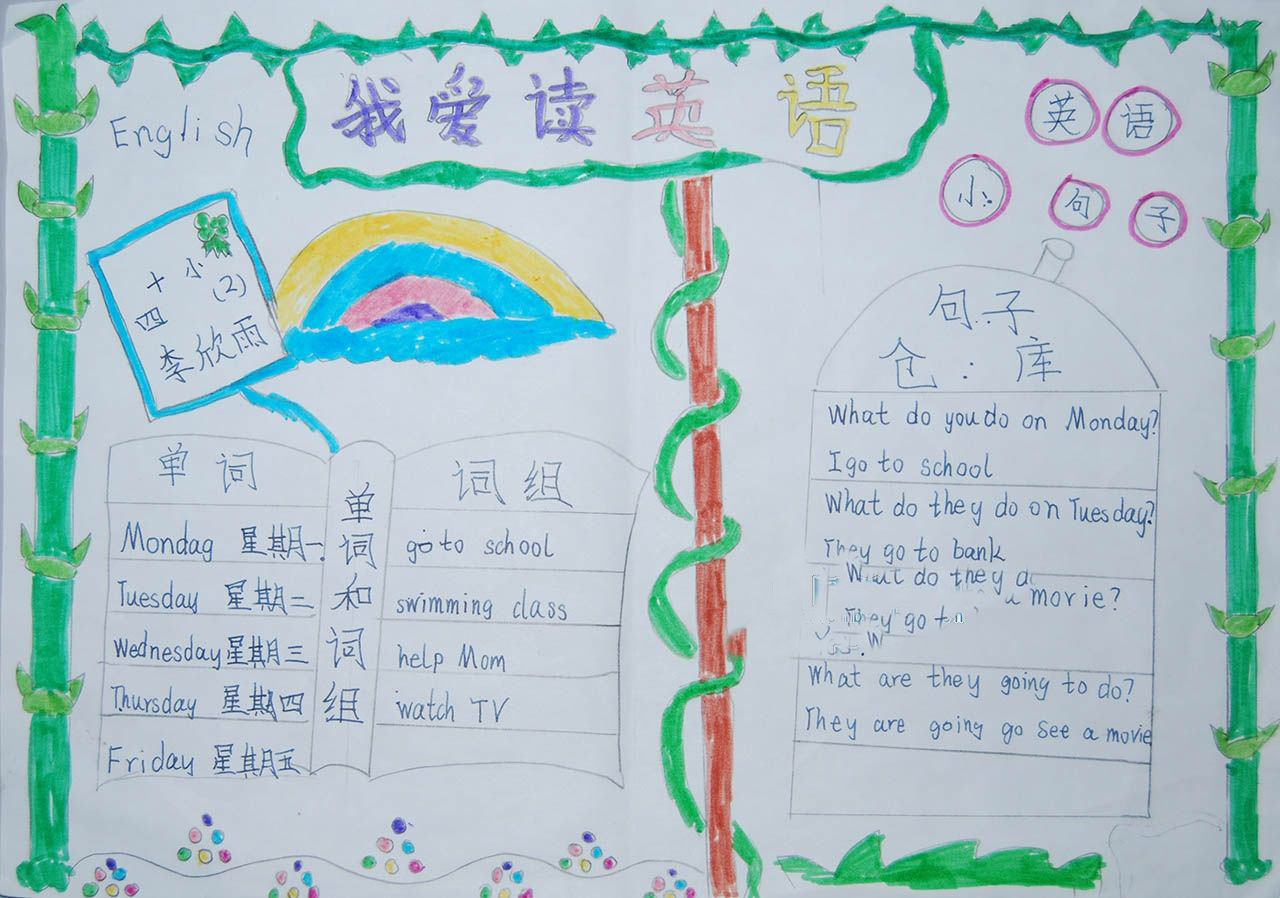 我爱读英语
English
十小
四(2)
李欣雨
英语
小句子
单词
Mondag 星期一.
Tuesday 星期二
Wednesday 星期三
Thursday 星期四
Friday 星期五
单词和词组
词组
go to school
swimming class
help Mom
watch TV
句子
仓:库
What do you do on Monday?
I go to school
What do they do on Tuesday?
They go to bank
What do they
a movie?
They go t
What are they going to do?
They are going go see a movie